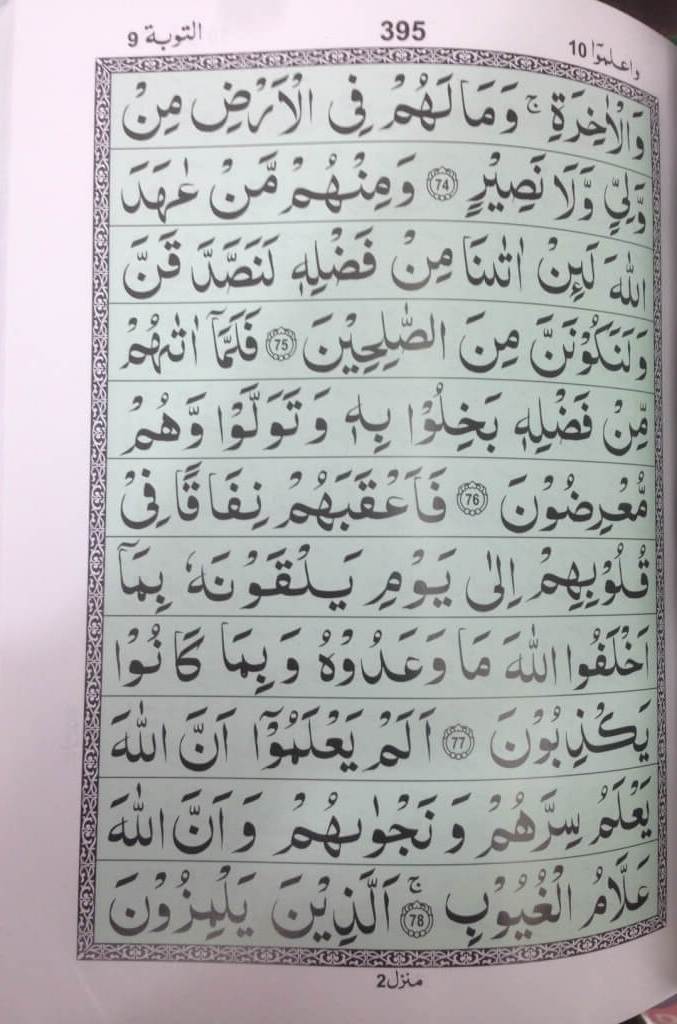 التوبة 9
395
واعلموٓا 10
وَالْاٰخِرَةِ ۚ وَمَا لَهُمْ فِى الْاَرْضِ مِنْ
وَّلِيٍّ وَّلَا نَصِيْرٍ 74 وَمِنْهُمْ مَّنْ عٰهَدَ
اللّٰهَ لَئِنْ اٰتٰىنَا مِنْ فَضْلِهٖ لَنَصَّدَّقَنَّ
وَلَنَكُوْنَنَّ مِنَ الصّٰلِحِيْنَ 75 فَلَمَّآ اٰتٰىهُمْ
مِّنْ فَضْلِهٖ بَخِلُوْا بِهٖ وَتَوَلَّوْا وَّهُمْ
مُّعْرِضُوْنَ 76 فَاَعْقَبَهُمْ نِفَاقًا فِىْ
قُلُوْبِهِمْ اِلٰى يَوْمِ يَلْقَوْنَهٗ بِمَآ
اَخْلَفُوا اللّٰهَ مَا وَعَدُوْهُ وَبِمَا كَانُوْا
يَكْذِبُوْنَ 77 اَلَمْ يَعْلَمُوْٓا اَنَّ اللّٰهَ
يَعْلَمُ سِرَّهُمْ وَنَجْوٰىهُمْ وَاَنَّ اللّٰهَ
عَلَّامُ الْغُيُوْبِ ۚ 78 اَلَّذِيْنَ يَلْمِزُوْنَ
منزل2